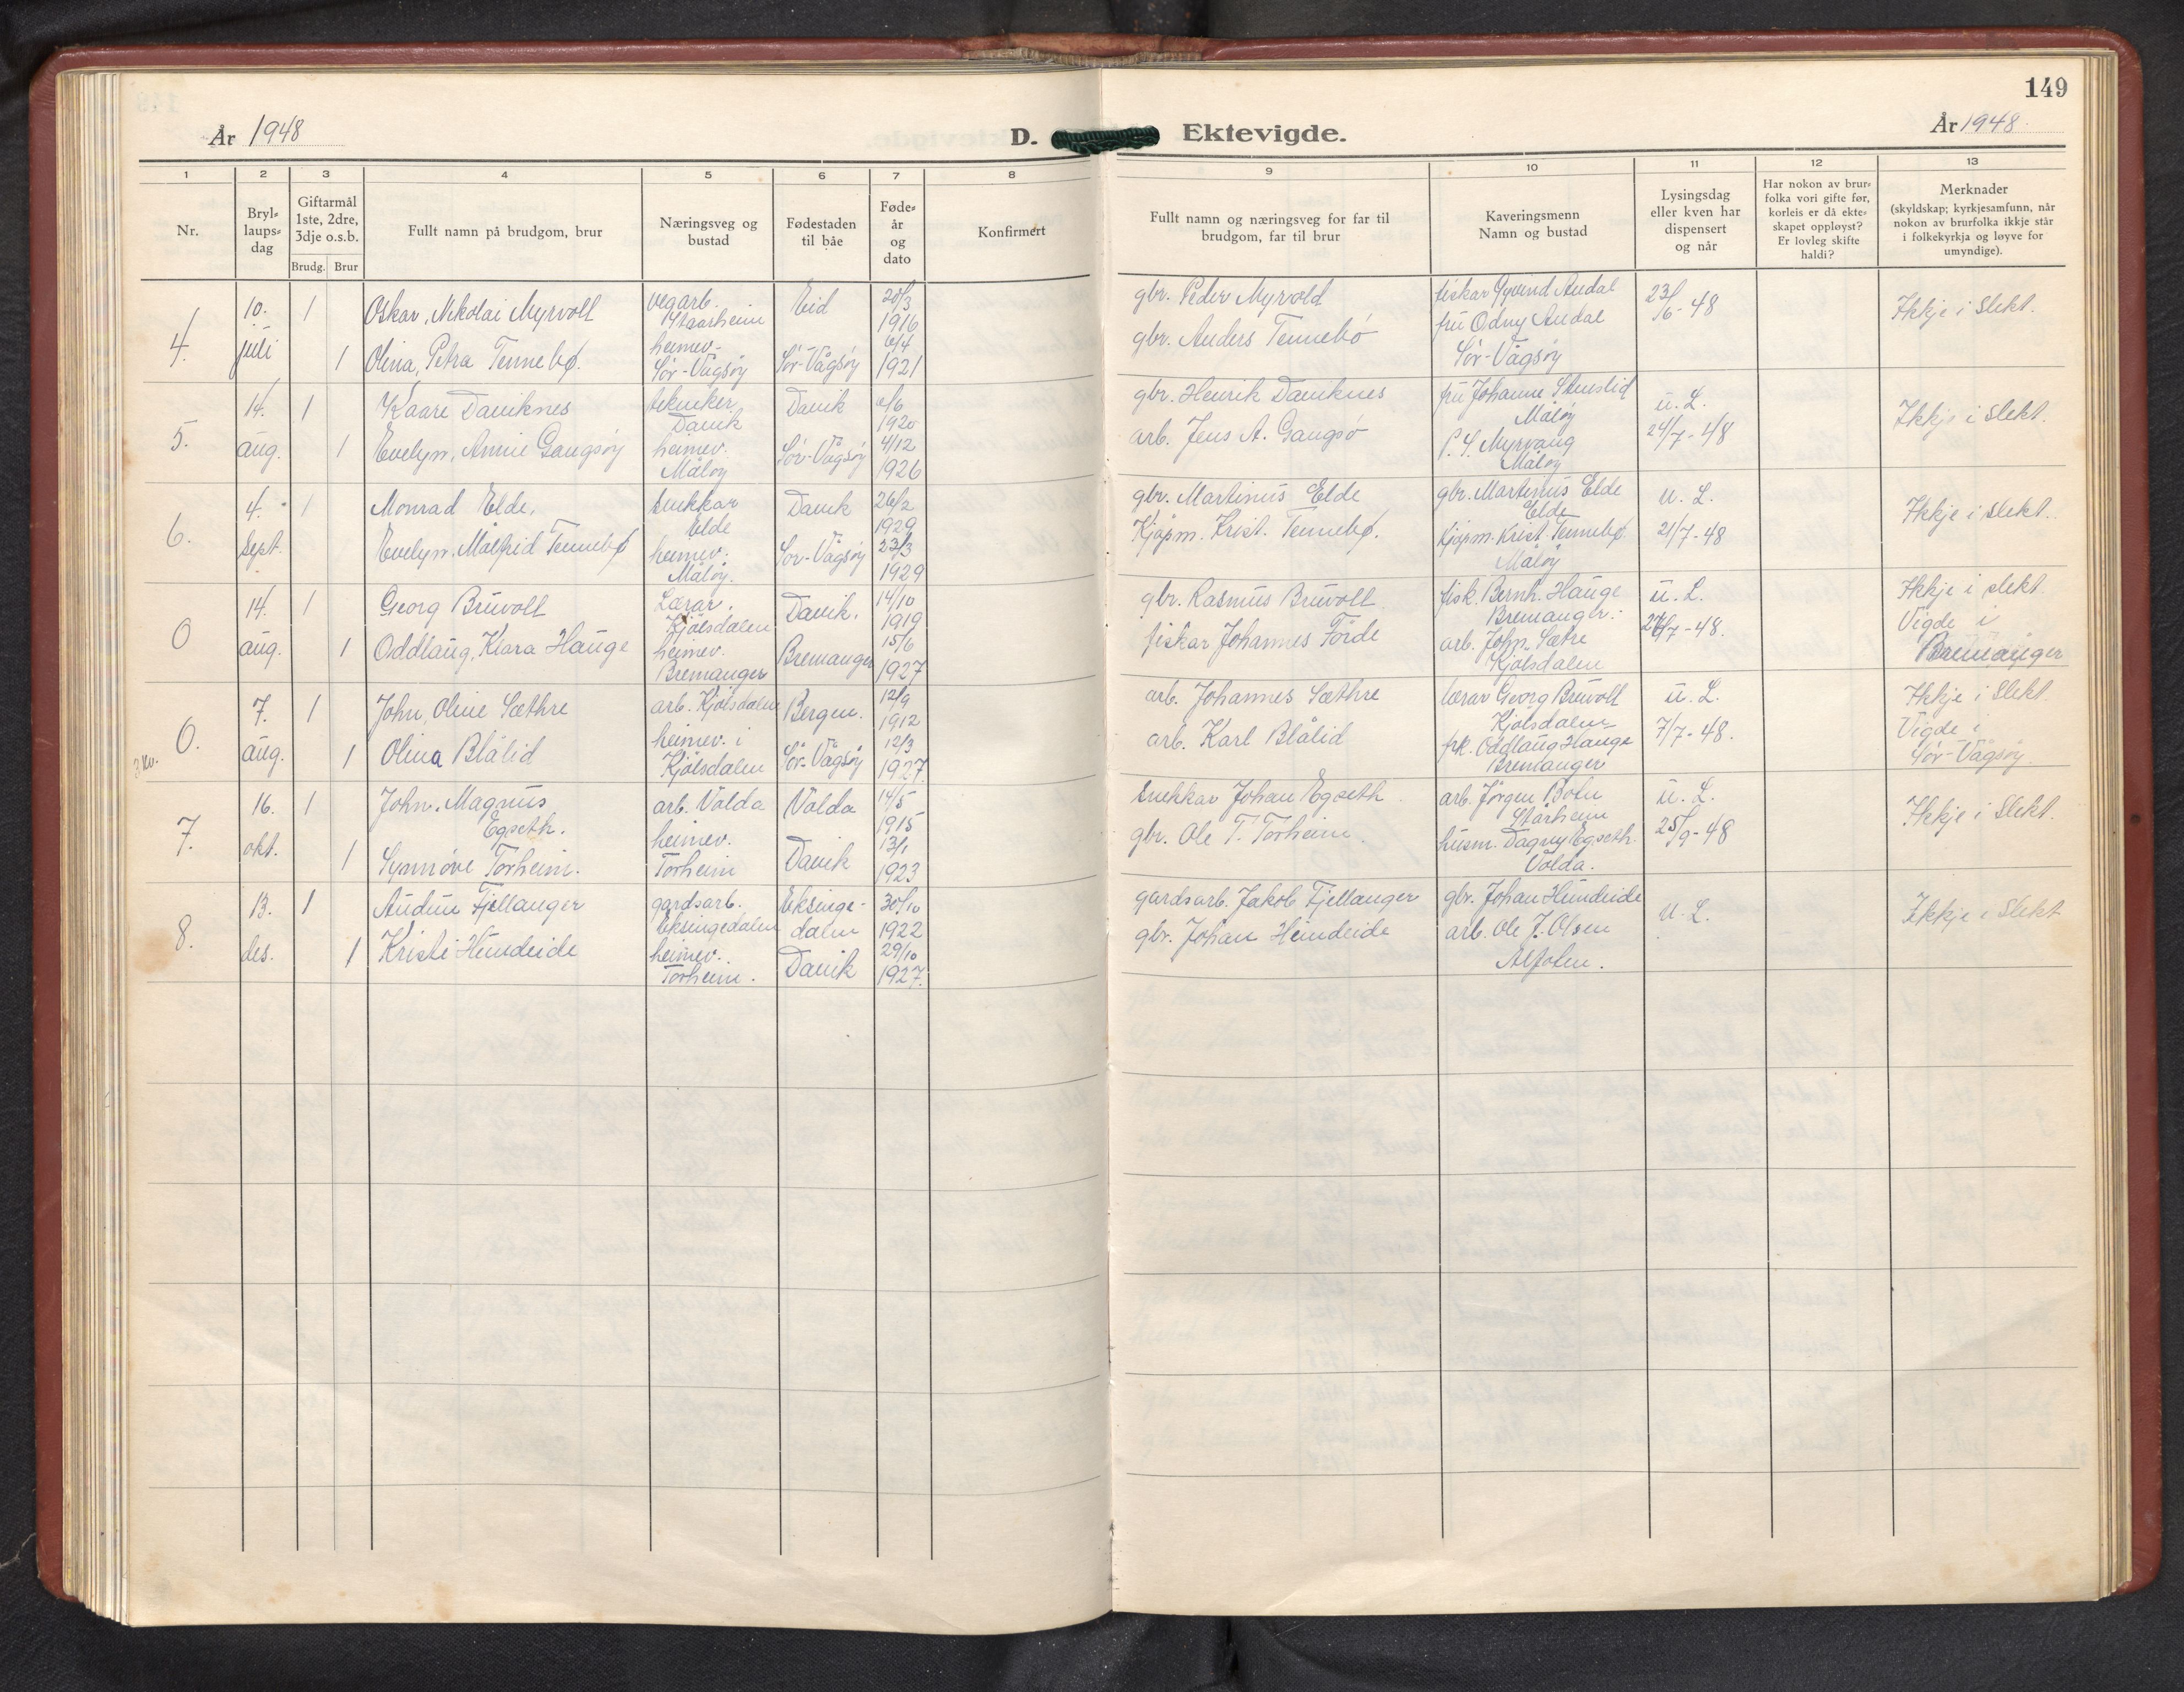 149
År 1948
D. Ektevigde.
År 1948.
1 2 3 4 5 6 7 8 9 10 11 12 13
Nr.
Bryl-
laups-
dag
Giftarmål
1ste, 2dre,
3dje o.s.b.
Brudg. Brur
Fullt namn på brudgom, brur
Næringsveg og
bustad
Fødestaden
til båe
Føde-
år
og
dato
Konfirmert
Fullt namn og næringsveg for far til
brudgom, far til brur
Kaveringsmenn
Namn og bustad
Lysingsdag
eller kven har
dispensert
og når
Har nokon av brur-
folka vori gifte før,
korleis er då ekte-
skapet oppløyst?
Er lovleg skifte
haldi?
Merknader
(skyldskap; kyrkjesamfunn, når
nokon av brurfolka ikkje står
i folkekyrkja og løyve for
umyndige).
4.
10.
juli
1
1
Oskar, Nikolai Myrvoll
Olina, Petra Tennebø.
vegarb.
Staarheim
heimev.
Sør-Vågsøy
Eid
Sør-Vågsøy
20/3
1916
6/4
1921
gbr. Peder Myrvold
gbr. Anders Tennebø
fiskar Øyvind Audal
fru Odny Audal
Sør-Vågsøy
23/6-48
Ikkje i slekt.
5.
14.
aug.
1
1
Kaare Daviknes
Evelyn, Annie Gangsøy
tekniker
Davik
heimev.
Måløy
Davik
Sør-Vågsøy
1920
4/12
1926
gbr. Henrik Daviknes
arb. Jens A. Gangsø
fru Johanne
Måløy
Myrvang
Måløy
u. L.
24/7-48
Ikkje i slekt.
6.
4.
sept.
1
Monrad Elde.
Evelyn, Målfrid Tennebø
snekkar
Elde
heimev.
Måløy.
Davik
Sør-Vågsøy
26/2
1929
23/3
1929
gbr. Martinus Elde
Kjøpm. Krist. Tennebø.
gbr. Martinus Elde
Elde
Kjøpm. Krist. Tennebø.
Måløy
u. L.
21/7-48
Ikkje i slekt.
0
14.
aug.
1
1
Georg Bruvoll
Oddlaug, Klara Hauge
Lærar.
Kjølsdalen
heimev.
Bremanger
Davik.
Bremanger
14/10
1919
15/6
1927
gbr. Rasmus Bruvoll
fiskar Johannes Førde
fisk. Bernh. Hauge
Bremanger.
arb. John Sætre
Kjølsdalen
u. L.
/7-48.
Ikkje i slekt
Vigde i
Bremanger
3 kv.
0.
7.
aug.
1
1
John, Oline Sæthre
Olina Blålid
arb. Kjølsdalen
heimev. i
Kjølsdalen
Bergen.
Sør-Vågsøy
12/9
1912
12/3
1927.
arb. Johannes Sæthre
arb. Karl Blålid
lærar Georg Bruvoll
Kjølsdalen
frk. Oddlaug Hauge
Bremanger
u. L.
7/7-48.
Ikkje i slekt.
Vigde i
Sør-Vågsøy.
7.
16.
okt.
1
1
John, Magnus
Egseth.
Synnøve Torheim.
arb. Volda
heimev.
Torheim
Volda
Davik
14/5
1915
13/1
1923
snekkar Johan Egseth.
gbr. Ole T. Torheim.
arb. Jørgen Botn
Stårheim
husm. Dagny Egseth.
Volda.
u. L.
25/9-48
Ikkje i slekt.
8.
13.
des.
1
1
Audun Fjellanger
Kristi Hundeide
gardsarb.
Eksingedalen
heimev.
Torheim.
Eksinge-
dalen
Davik
30/10
1922
29/10
1927.
gardsarb. Jakob Fjellanger
gbr. Johan Hundeide
gbr. Johan Hundeide
arb. Ole J. Olsen
Ålfoten.
u. L.
Ikkje i slekt